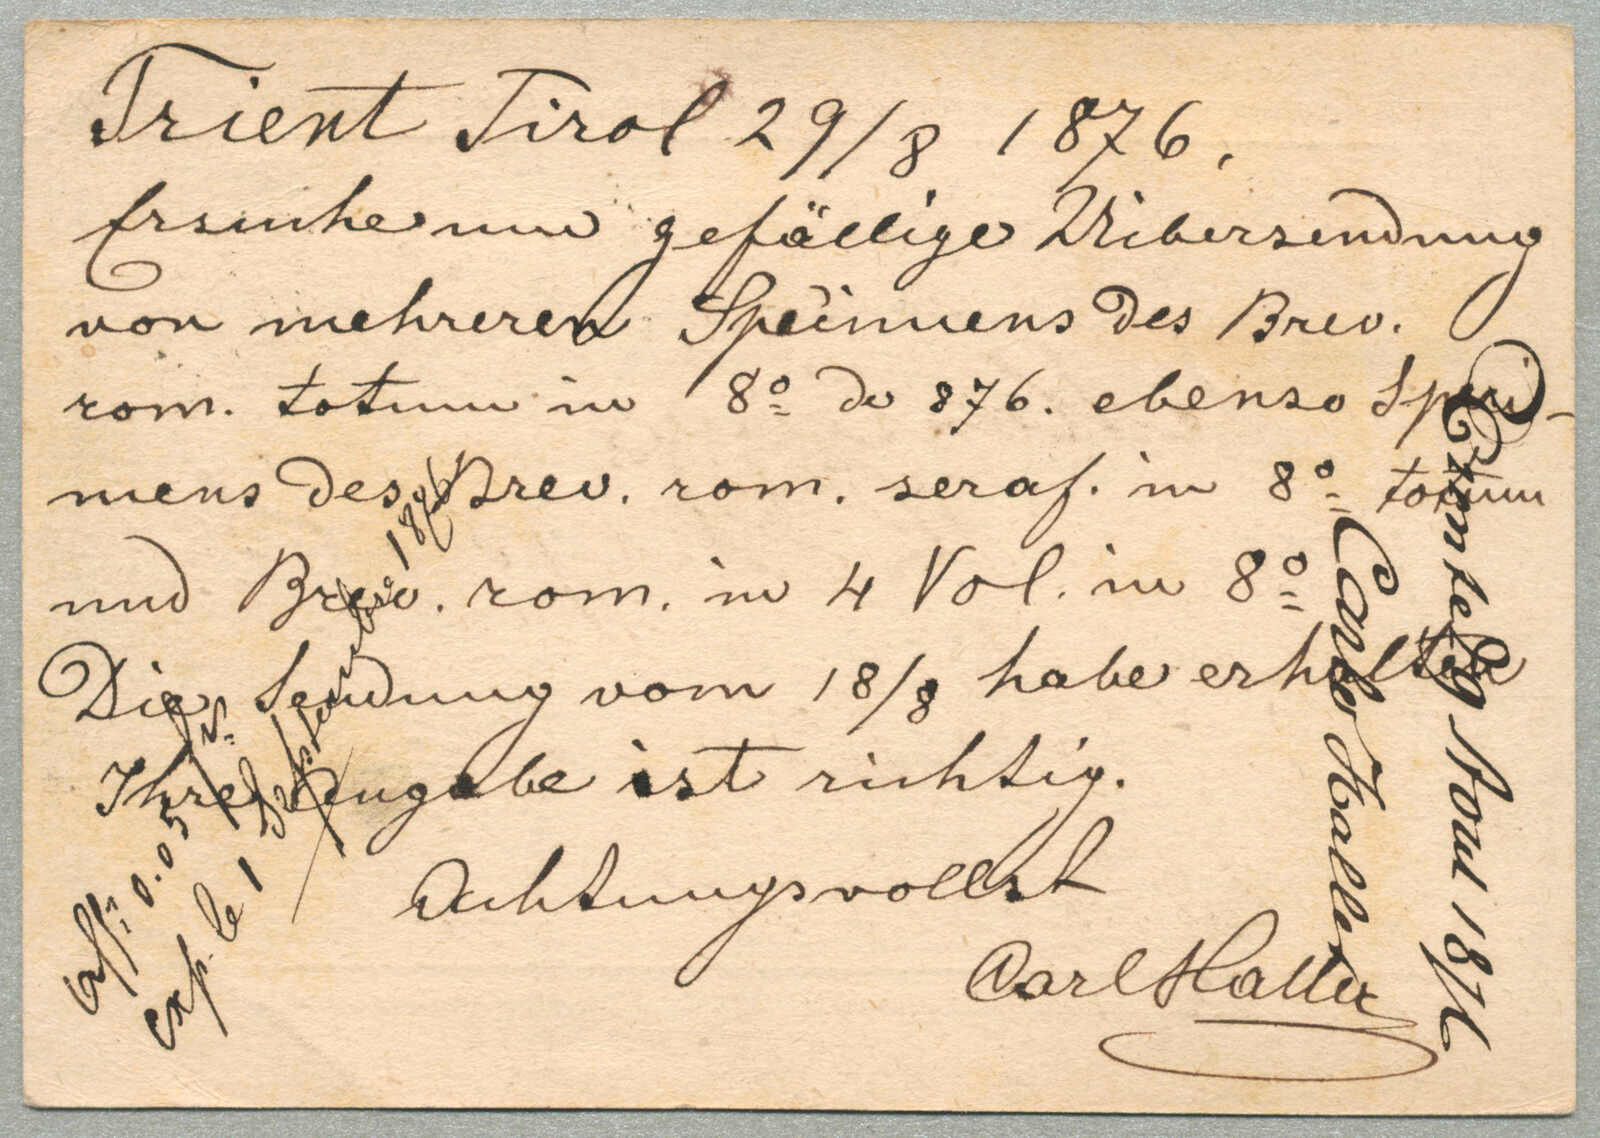 Trient Tirol 29/8 1876.
Ersuche um gefällige Uibersendung
von mehreren Specimens des Brev.
rom. totum in 8º do 876. ebenso Speci-
mens des Brev. rom. seraf. in 8º totum
und Brev. rom. in 4 Vol. in 8º
Die Sendung vom 18/8 habe erhalten
Ihre Angabe ist richtig.
Achtungsvollst
Carl Haller
Trente 29 Aout 1876
Carlo Haller
Aff: 0.05
exp. le 1 Septembre 1876